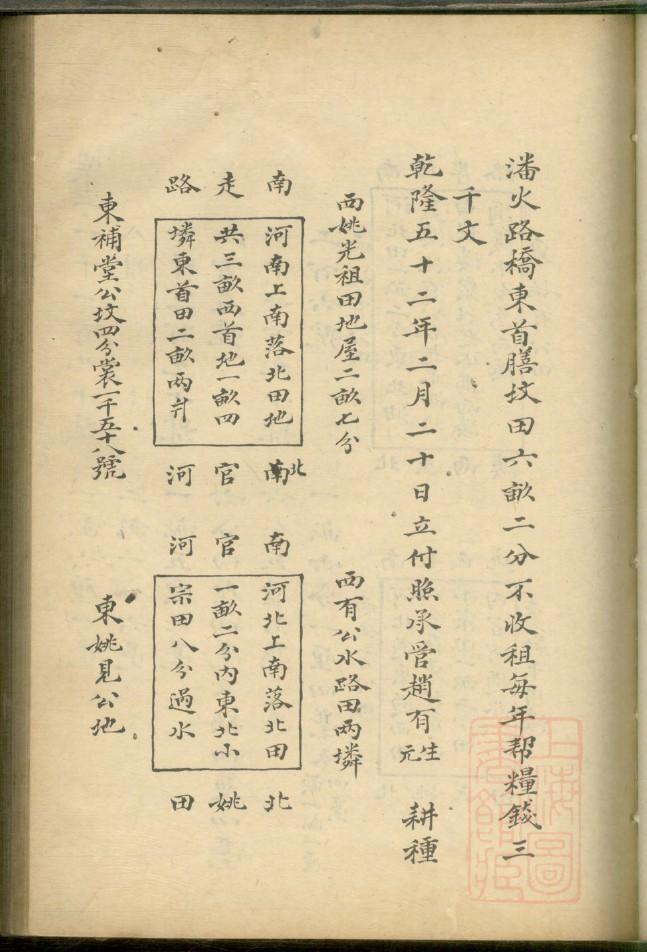 潘火路橋東首膳坟田六畝二分不收租每年帮糧錢三
千文
乾隆五十二年二月二十日立付照承管趙有生元 耕種
西姚光祖田地屋二畝七分
南 河南上南落北田地 北
走 共三畝西首地一畝四 官
路 墣東首田二畝兩爿 河
東補堂公坟四分裳一千五十八號
西有公水路田兩墣
南 河北上南落北田 北
官 一畝二分內東北小 姚
河 宗田八分過水 田
東姚見公地
上海圖